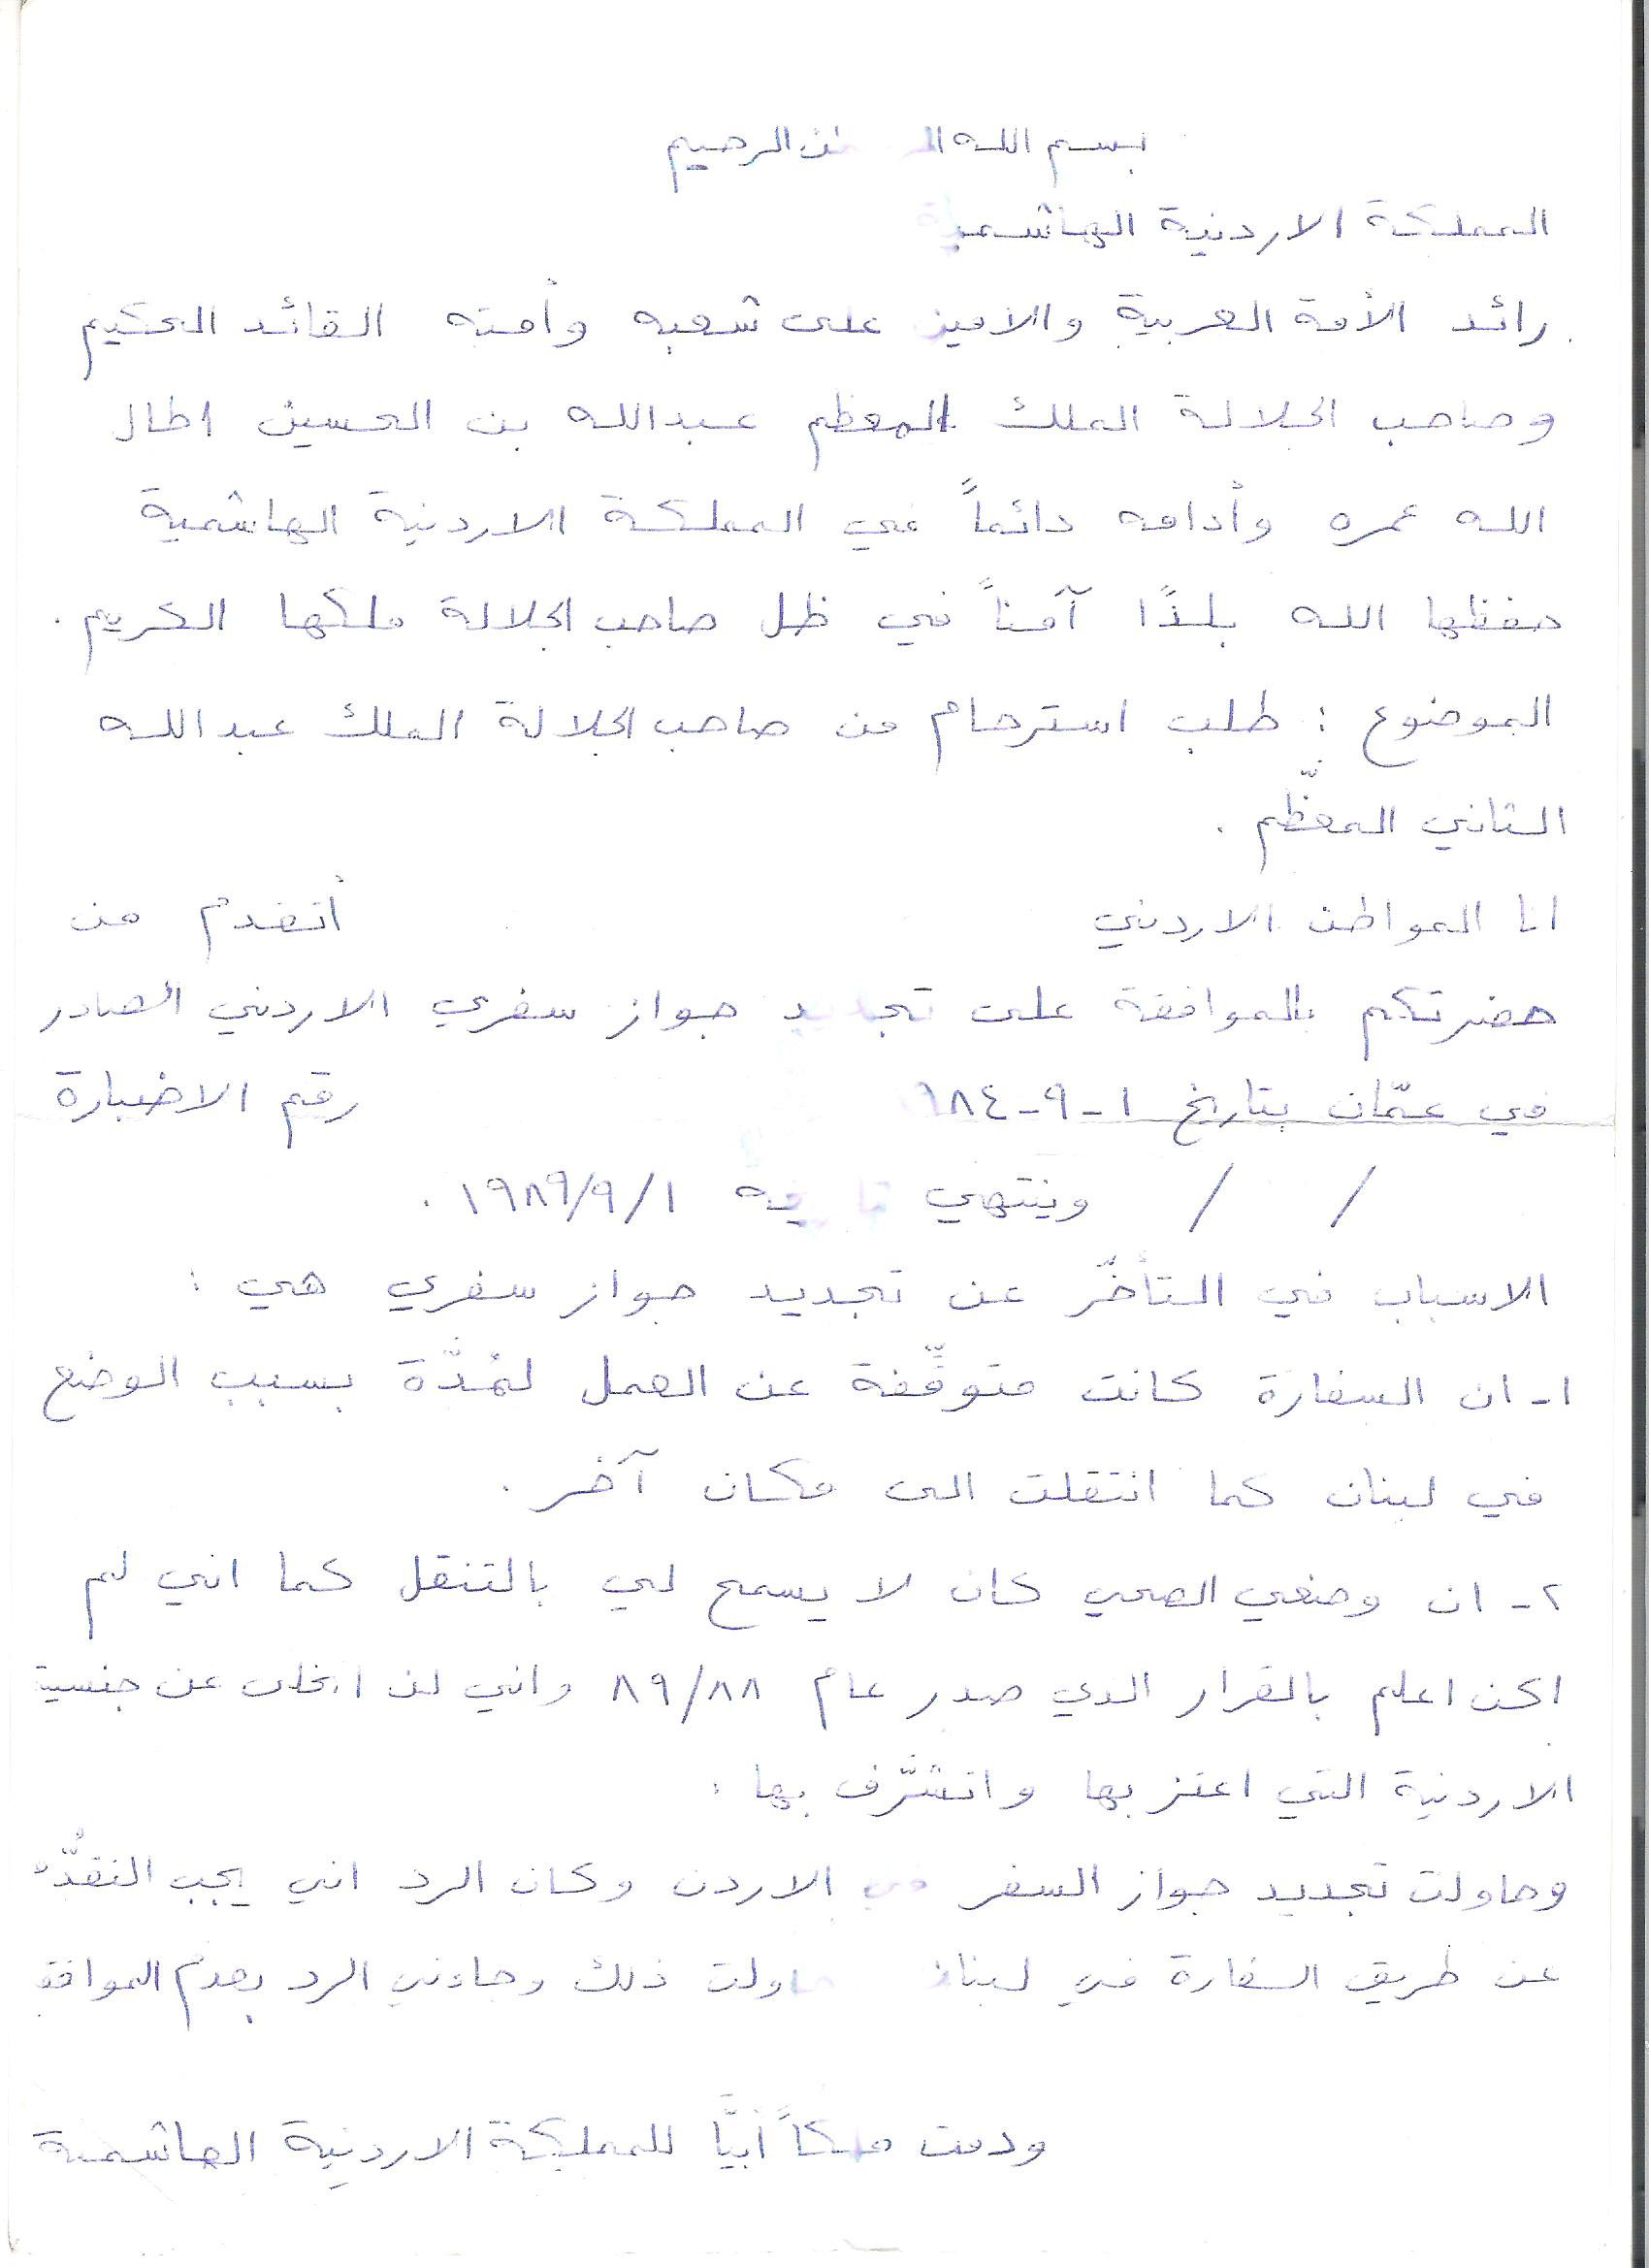 بسم الله الرحمن الرحيم
المملكة الاردنية الهاشمية
رائد الأمة العربية والامين على شعبه وأمته القائد الحكيم
وصاحب الجلالة الملك المعظم عبدالله بن الحسين اطال
الله عمره وأدامه دائماً في المملكة الاردنية الهاشمية
حفظها الله بلدًا آمناً في ظل صاحب الجلالة ملكها الكريم.
الموضوع : طلب استرحام من صاحب الجلالة الملك عبدالله
الثاني المعظّم .
انا المواطن الاردني أتقدم من
حضرتكم بالموافقة على تجديد جواز سفري الاردني الصادر
في عمّان بتاريخ ١-٩-٩٨٤ رقم الاضبارة
/ / وينتهي تاريخه ١٩٨٩/٩/١ .
الاسباب في التأخّر عن تجديد جواز سفري هي :
١- ان السفارة كانت متوقِّفة عن العمل لمُدَّة بسبب الوضع
في لبنان كما انتقلت الى مكان آخر .
٢- ان وضعي الصحي كان لا يسمح لي بالتنقل كما اني لم
اكن اعلم بالقرار الذي صدر عام ٨٩/٨٨ واني لن اتخلى عن جنسية
الاردنية التي اعتز بها واتشرَّف بها :
وحاولت تجديد جواز السفر في الاردن وكان الرد اني يجب التقدُّم
عن طريق السفارة في لبنان حاولت ذلك وجاءني الرد بعدم الموافقة
ودمت ملكاً أبيًّا للمملكة الاردنية الهاشمية